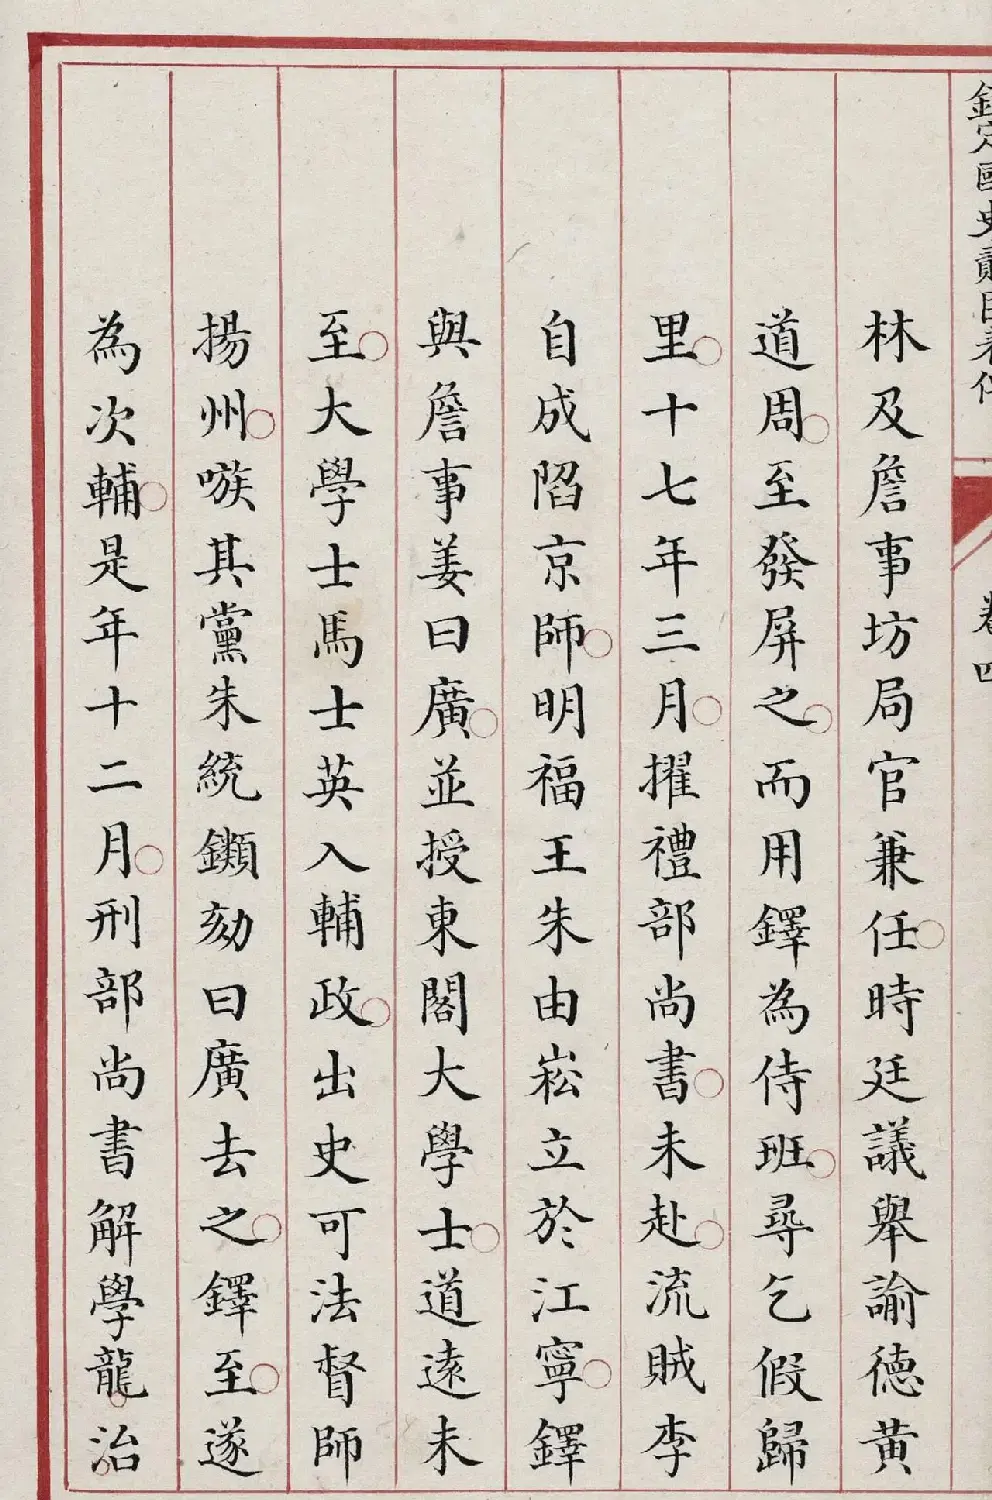 欽定國史貳臣表傳 卷四
林及詹事坊局官兼任時廷議舉諭德黃
道周至發屏之而用鐸為侍班尋乞假歸
里十七年三月擢禮部尚書未赴流賊李
自成陷京師明福王朱由崧立於江寧鐸
與詹事姜曰廣並授東閣大學士道遠未
至大學士馬士英入輔政出史可法督師
揚州嗾其黨朱統𨰥劾曰廣去之鐸至遂
為次輔是年十二月刑部尚書解學龍治